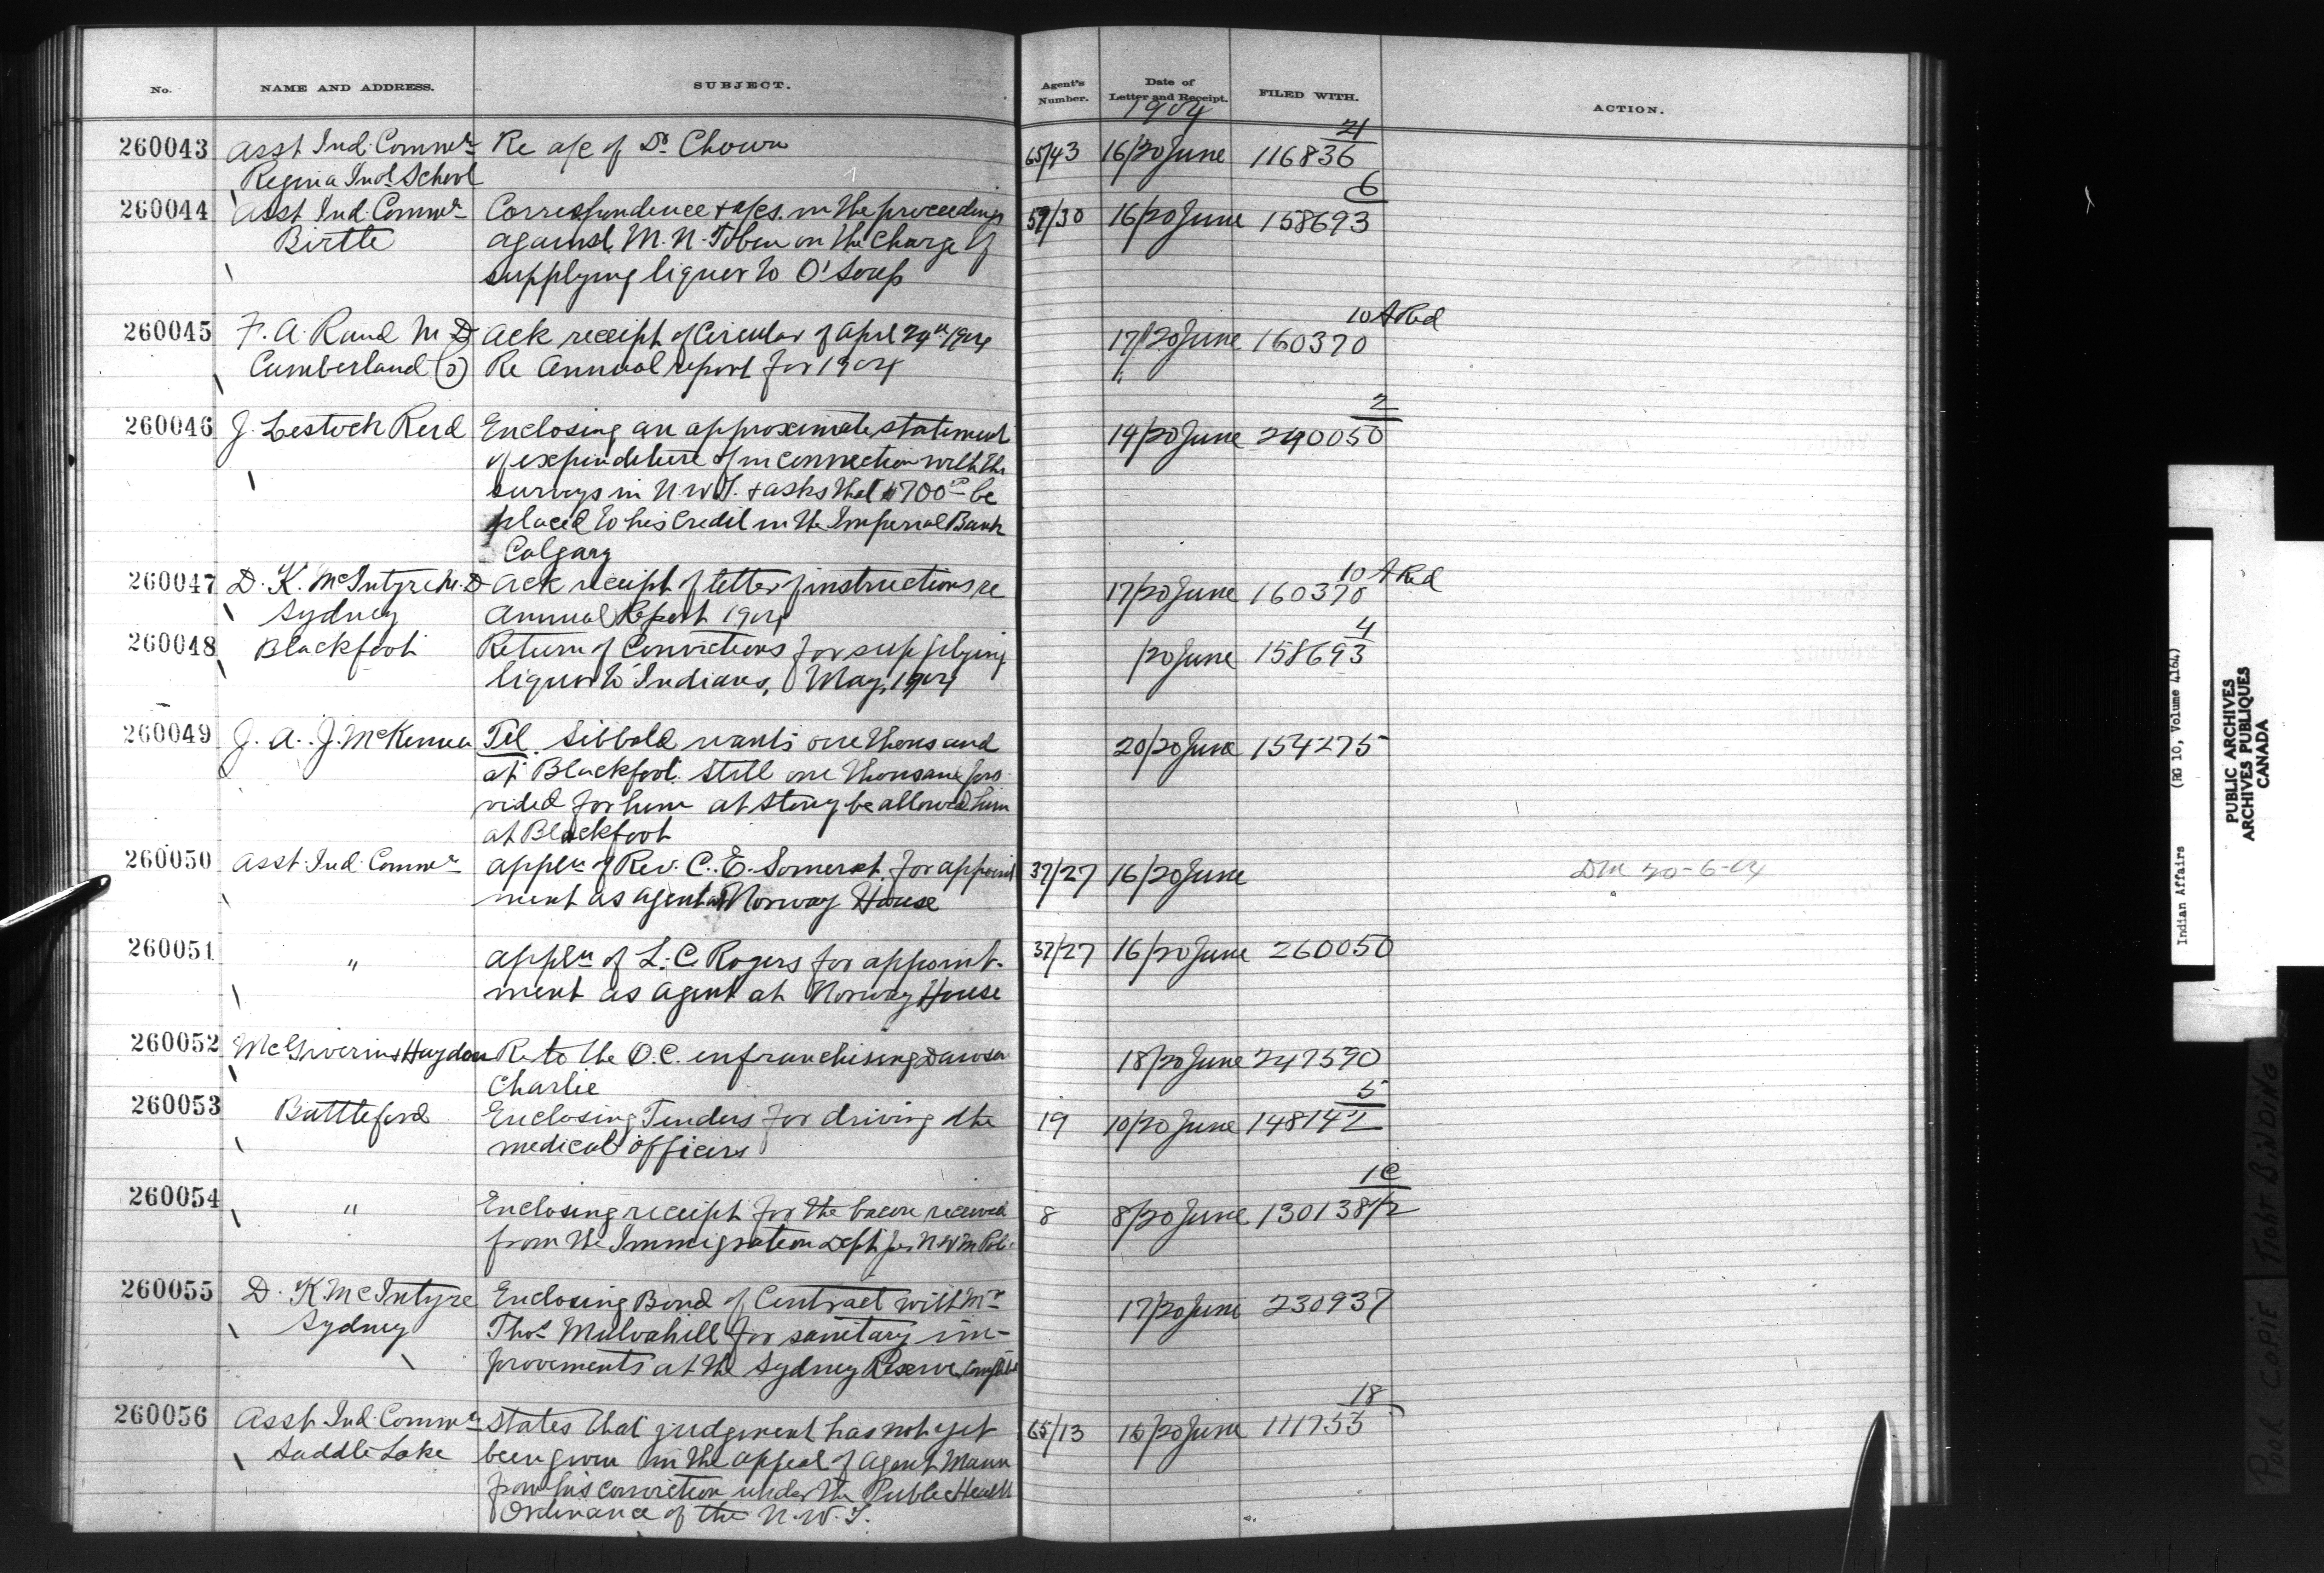 No. NAME AND ADDRESS. SUBJECT. Agent's Number. Date of Letter and Receipt. FILED WITH. ACTION.
1904
21
260043 Asst Ind. Commr Re a/c of Dr Chown 65/43 16/20 June 116836
Regina Indl School
6
260044 Asst Ind. Commr Correspondence & a/cs. in the proceedings 59/30 16/20 June 158693
Birtle against M. N. Tobin on the charge of
supplying liquor to O'Soup
10 A Red
260045 F. A. Rand M.D. Ack receipt of Circular of Apl 29th 1904 17/20 June 160370
Cumberland Re Annual report for 1904
2
260046 J. Lestock Reid Enclosing an approximate statement 14/20 June 240050
of expenditure of in connection with the
surveys in N.W.T. & asks that $700 be
placed to his credit in the Imperial Bank
Calgary
10 A Red
260047 D. K. McIntyre M.D Ack receipt of letter of instructions re 17/20 June 160370
Sydney Annual Report 1904
4
260048 Blackfoot Return of Convictions for supplying /20 June 158693
liquor to Indians, May, 1904
260049 J. A. J. McKenna Tel. Sibbald wants one thousand 20/20 June 154275
at Blackfoot. Still one thousand pro-
vided for him at Stony be allowed him
at Blackfoot
260050 Asst. Ind. Commr appln of Rev. C. E. Somerset for appoint 37/27 16/20 June DM 20-6-04
ment as agent at Norway House
260051 " appln of L. C. Rogers for appoint- 37/27 16/20 June 260050
ment as agent at Norway House
260052 McGiverin & Haydon Re to the O.C. enfranchising Dawson 18/20 June 247590
Charlie
5
260053 Battleford Enclosing Tenders for driving the 19 10/20 June 148142
medical officers
1C
260054 " Enclosing receipt for the bacon received 8 8/20 June 130138/2
from the Immigration Dept per N W M Pol.
260055 D. K. McIntyre Enclosing Bond of Contract with Mr 17/20 June 230937
Sydney Thos Mulvahill for sanitary im-
provements at the Sydney Reserve,
18
260056 Asst Ind. Commr States that judgment has not yet 65/13 16/20 June 111733
Saddle Lake been given in the appeal of Agent Mann
from his conviction under the Public Health
Ordinance of the N.W.T.
Indian Affairs (RG 10, Volume 4164)
PUBLIC ARCHIVES
ARCHIVES PUBLIQUES
CANADA
POOR COPIE TIGHT BINDING